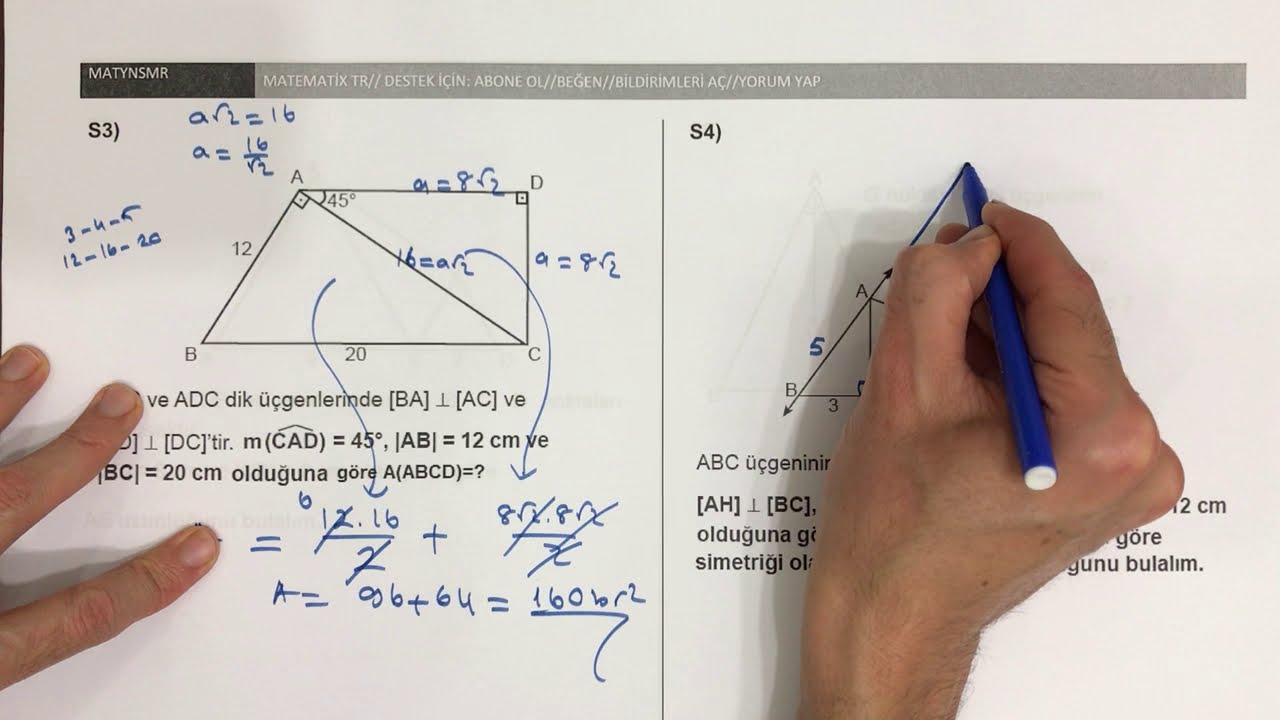 MATYNSMR
MATEMATİX TR// DESTEK İÇİN: ABONE OL//BEĞEN//BİLDİRİMLERİ AÇ//YORUM YAP
S3)
a√2 = 16
a = 16/√2
3-4-5
12-16-20
A
45°
a = 8√2
D
12
16 = a√2
a = 8√2
B
20
C
ve ADC dik üçgenlerinde [BA] ⊥ [AC] ve
D] ⊥ [DC]'tir. m(CAD) = 45°, |AB| = 12 cm ve
|BC| = 20 cm olduğuna göre A(ABCD)=?
6
= 12.16/2 + 8√2.8√2/2
A = 96+64 = 160br²
S4)
A
5
B
3
ABC üçgeninin
[AH] ⊥ [BC], 12 cm
olduğuna göre
simetriği bulalım.